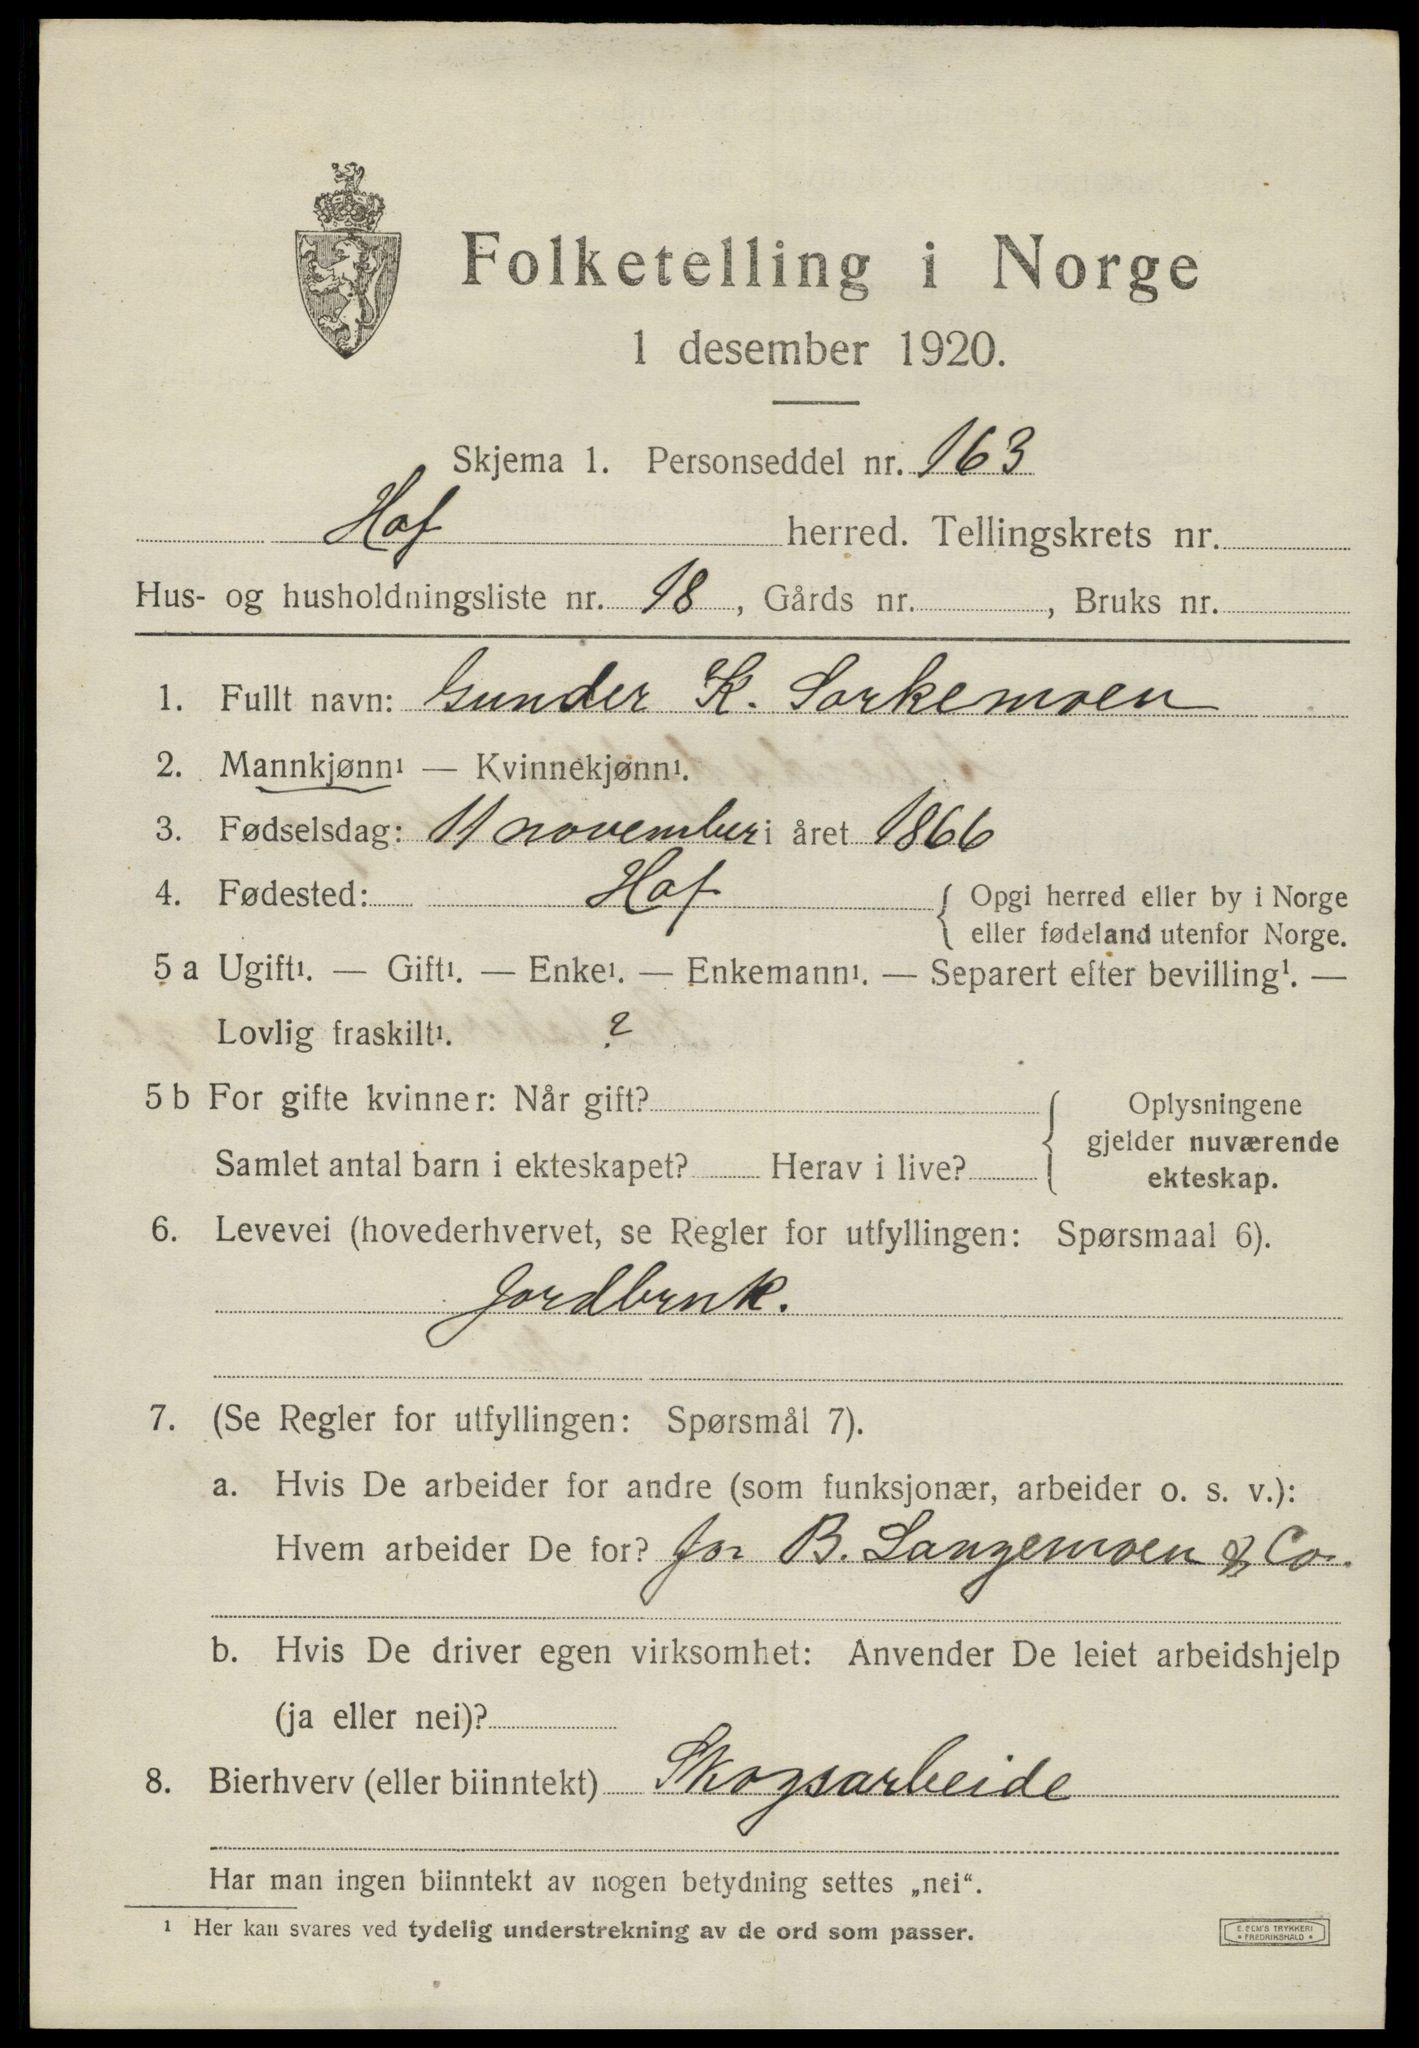 Folketelling i Norge
1 desember 1920.
Skjema 1. Personseddel nr. 163
Hof herred. Tellingskrets nr.
Hus- og husholdningsliste nr. 18, Gårds nr. , Bruks nr.
1. Fullt navn: Gunder K. Sorkemoen
2. Mannkjønn¹ — Kvinnekjønn¹.
3. Fødselsdag: 11 november i året 1866
4. Fødested: Hof { Opgi herred eller by i Norge
eller fødeland utenfor Norge.
5 a Ugift¹. — Gift¹. — Enke¹. — Enkemann¹. — Separert efter bevilling¹. —
Lovlig fraskilt¹. ?
5 b For gifte kvinner: Når gift?
Samlet antal barn i ekteskapet? Herav i live?
{ Oplysningene
gjelder nuværende
ekteskap.
6. Levevei (hovederhvervet, se Regler for utfyllingen: Spørsmaal 6).
Jordbruk.
7. (Se Regler for utfyllingen: Spørsmål 7).
a. Hvis De arbeider for andre (som funksjonær, arbeider o. s. v.):
Hvem arbeider De for? for B. Langemoen & Co.
b. Hvis De driver egen virksomhet: Anvender De leiet arbeidshjelp
(ja eller nei)?
8. Bierhverv (eller biinntekt) Skogsarbeide
Har man ingen biinntekt av nogen betydning settes „nei“.
¹ Her kan svares ved tydelig understrekning av de ord som passer.
E. SEM'S TRYKKERI
FREDRIKSHALD